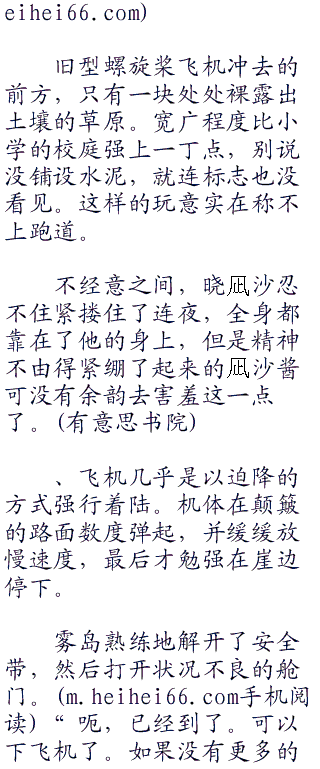 eihei66.com)
旧型螺旋桨飞机冲去的
前方，只有一块处处裸露出
土壤的草原。宽广程度比小
学的校庭强上一丁点，别说
没铺设水泥，就连标志也没
看见。这样的玩意实在称不
上跑道。
不经意之间，晓凪沙忍
不住紧搂住了连夜，全身都
靠在了他的身上，但是精神
不由得紧绷了起来的凪沙酱
可没有余韵去害羞这一点
了。(有意思书院)
、飞机几乎是以迫降的
方式强行着陆。机体在颠簸
的路面数度弹起，并缓缓放
慢速度，最后才勉强在崖边
停下。
雾岛熟练地解开了安全
带，然后打开状况不良的舱
门。(m.heihei66.com手机阅
读)“呃，已经到了。可以
下飞机了。如果没有更多的